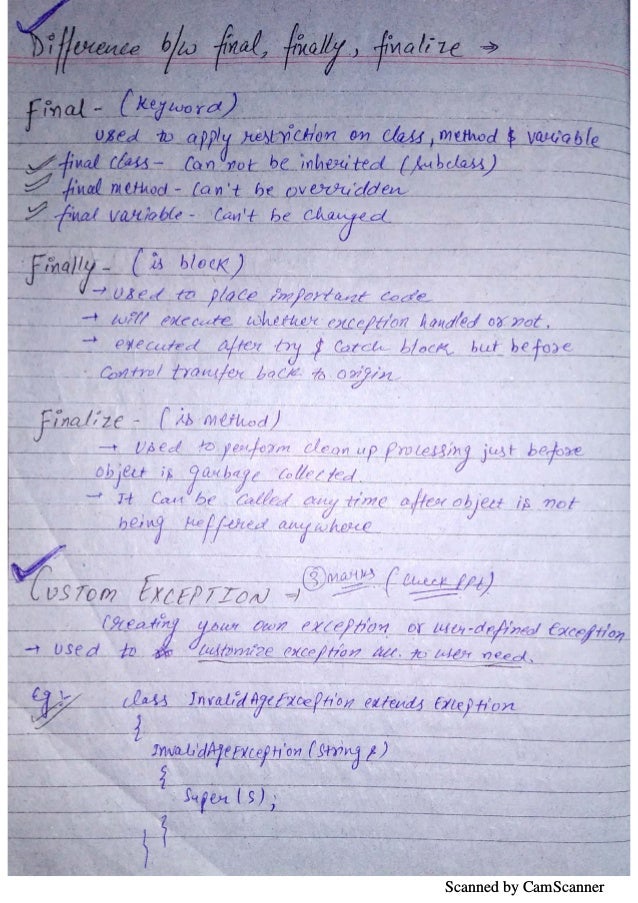 Difference b/w final, finally, finalize →
Final - (keyword)
used to apply restriction on class, method & variable
final class - Can not be inherited (subclass)
final method - Can't be overridden
final variable - Can't be changed
Finally - (is block)
→ used to place important code
→ will execute whether exception handled or not.
→ executed after try & catch block but before
control transfer back to origin
Finalize - (is method)
→ Used to perform clean up processing just before
object is garbage collected.
→ It can be called any time after object is not
being reffered anywhere
CUSTOM EXCEPTION → ③ marks (check ppt)
Creating your own exception or user-defined Exception
→ used to customize exception acc. to user need.
eg:- class InvalidAgeException extends Exception
{
InvalidAgeException (String s)
{
Super (S);
}
}
Scanned by CamScanner